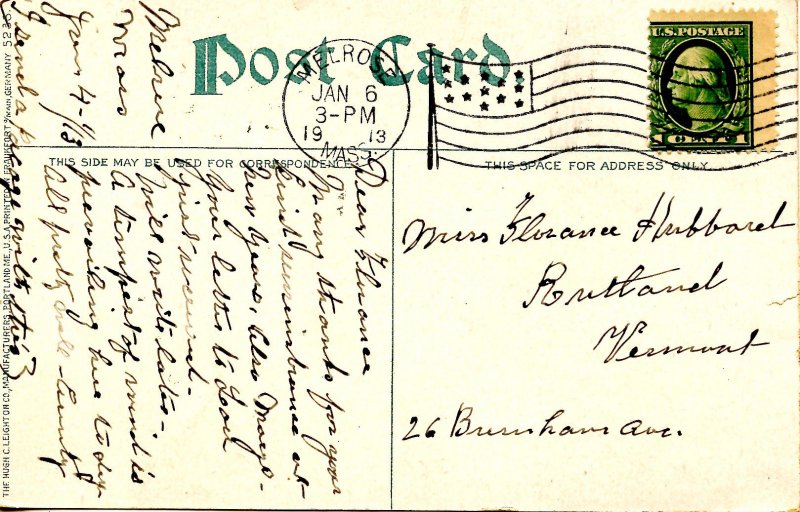 Post Card
MELROSE
JAN 6
3-PM
19 13
MASS.
U.S. POSTAGE
THIS SIDE MAY BE USED FOR CORRESPONDENCE
THIS SPACE FOR ADDRESS ONLY
THE HUGH C. LEIGHTON CO., MANUFACTURERS, PORTLAND, ME., U.S.A. PRINTED IN FRANKFORT o/MAIN, GERMANY 5236
Melrose
Mass
Jan 4-/13
Dear Florance
Many thanks for your
kind remembrance at
New Years, Also Mays-
Your letter to
just received-
Will write later-
A tempest of wind is
prevailing here to-day
All well
I send a
Miss Florance Hubbard
Rutland
Vermont
26 Burnham Ave.